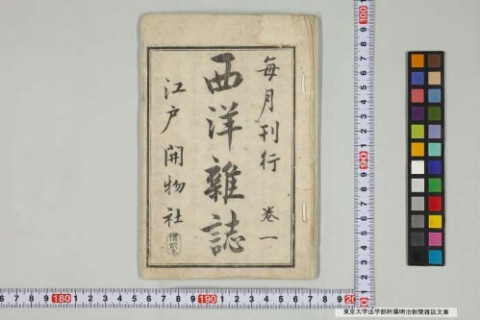 毎月刊行 巻一
西洋雑誌
江戸 開物社
東京大学法学部附属明治新聞雑誌文庫